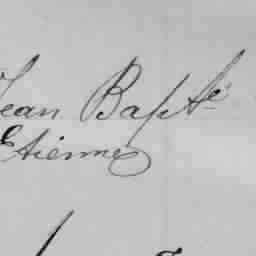 Jean Bapte
Etienne